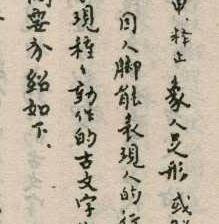 甲.释止 象人足形 或
因人脚能表現人的行
現種々動作的古文字
要介紹如下.